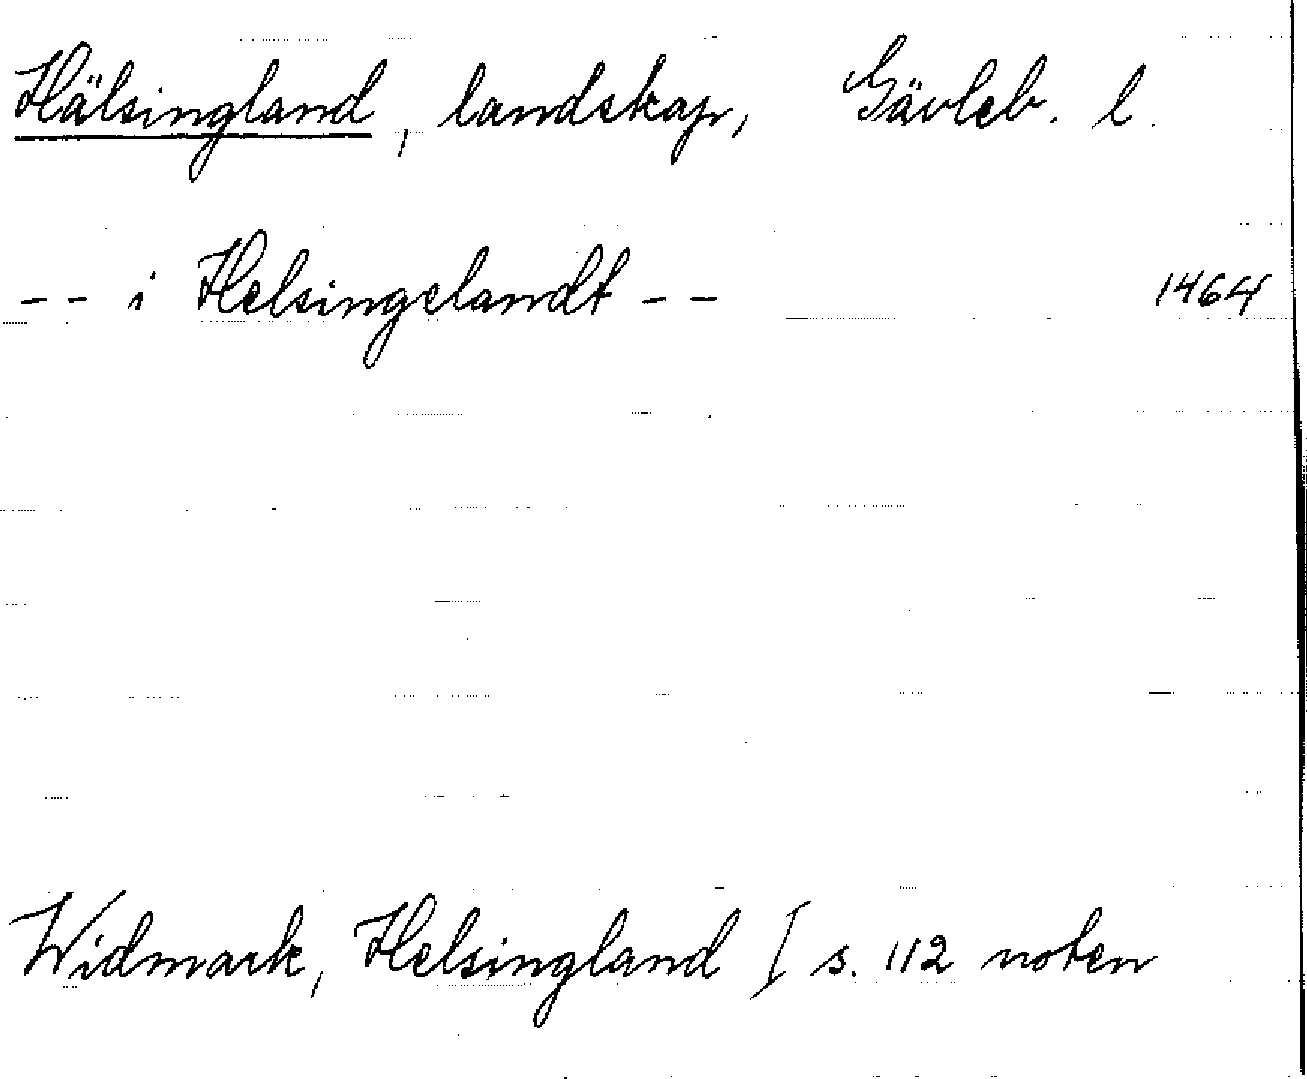 Hälsingland, landskap, Gävleb. l.
-- i Helsingelandt -- 1464
Widmark, Helsingland I s. 112 noten